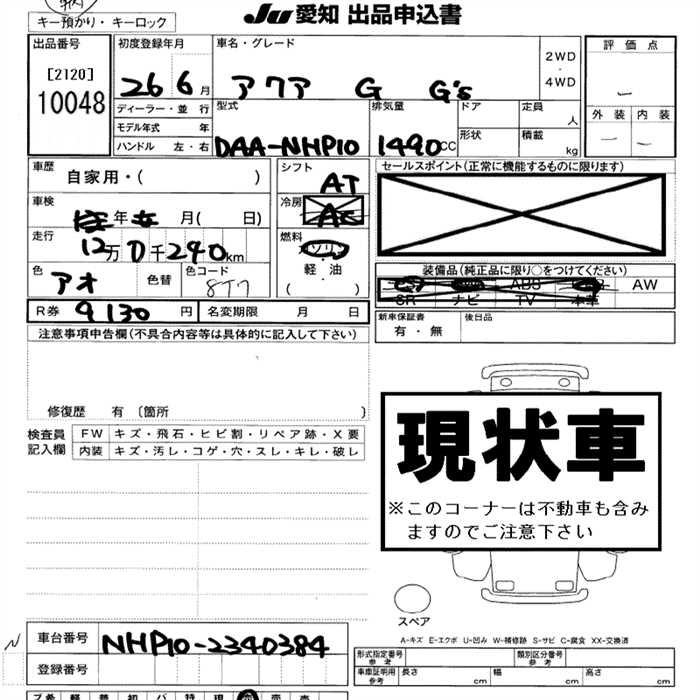 JU 愛知 出品申込書
キー預かり・キーロック
出品番号
[2120]
10048
初度登録年月
26 6月
ディーラー・並行
モデル年式 年
ハンドル 左・右
車名・グレード
アクア G G's
2WD
・
4WD
型式
DAA-NHP10
排気量
1490CC
ドア
形状
定員
人
積載
kg
評価点
外装 内装
車歴
自家用・( )
車検
年 月( 日)
走行
12万0千240km
色
アオ
色替
色コード
8T7
シフト
AT
冷房
AC
燃料
ガソリン
軽・油
( ・ )
R券
9130円
名変期限 月 日
セールスポイント(正常に機能するものに限ります)
装備品(純正品に限り○をつけてください)
ABS AW
SR ナビ TV 本革
新車保証書
有・無
後日品
注意事項申告欄(不具合内容等は具体的に記入して下さい)
修復歴 有〔箇所 〕
検査員
記入欄
FW キズ・飛石・ヒビ割・リペア跡・X要
内装 キズ・汚レ・コゲ・穴・スレ・キレ・破レ
現状車
※このコーナーは不動車も含み
ますのでご注意下さい
スペア
A-キズ E-エクボ U-凹み W-補修跡 S-サビ C-腐食 XX-交換済
車台番号
NHP10-2340384
登録番号
型式指定番号
参考
類別区分番号
参考
車庫証明用
参考
長さ cm
幅 cm
高さ cm